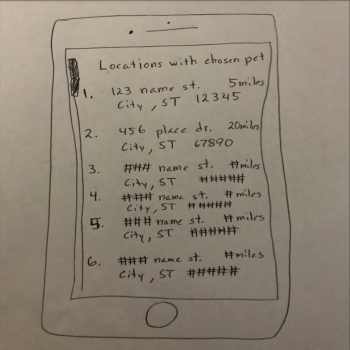 Locations with chosen pet
1. 123 name st. 5miles
City, ST 12345
2. 456 place dr. 20miles
City, ST 67890
3. ### name st. #miles
City, ST #####
4. ### name st. #miles
City, ST #####
5. ### name st. #miles
City, ST #####
6. ### name st. #miles
City, ST #####